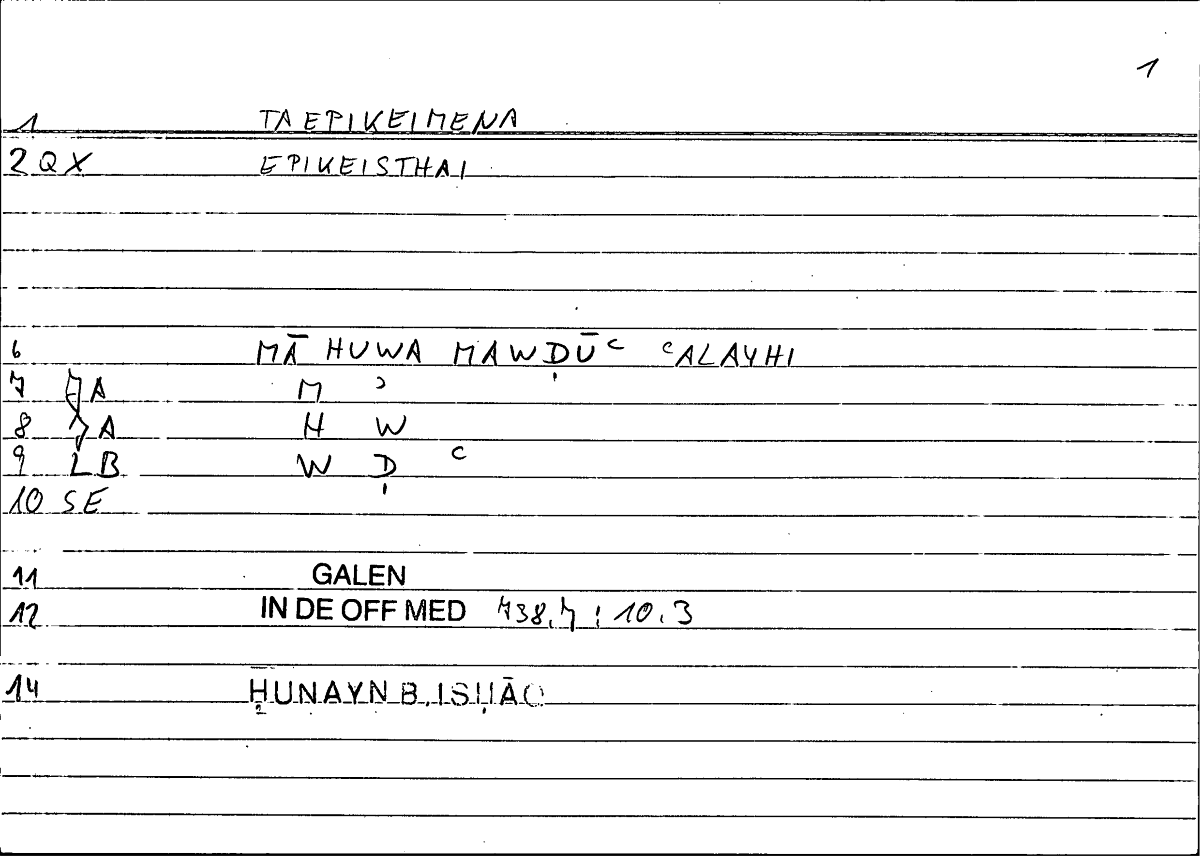 1
1 TA EPIKEIMENA
2 QX EPIKEISTHAI
6 MĀ HUWA MAWḌŪʿ ʿALAYHI
7 JA M ʾ
8 JA H W
9 LB W Ḍ ʿ
10 SE
11 GALEN
12 IN DE OFF MED 738,7 : 10.3
14 ḤUNAYN B. ISḤĀQ